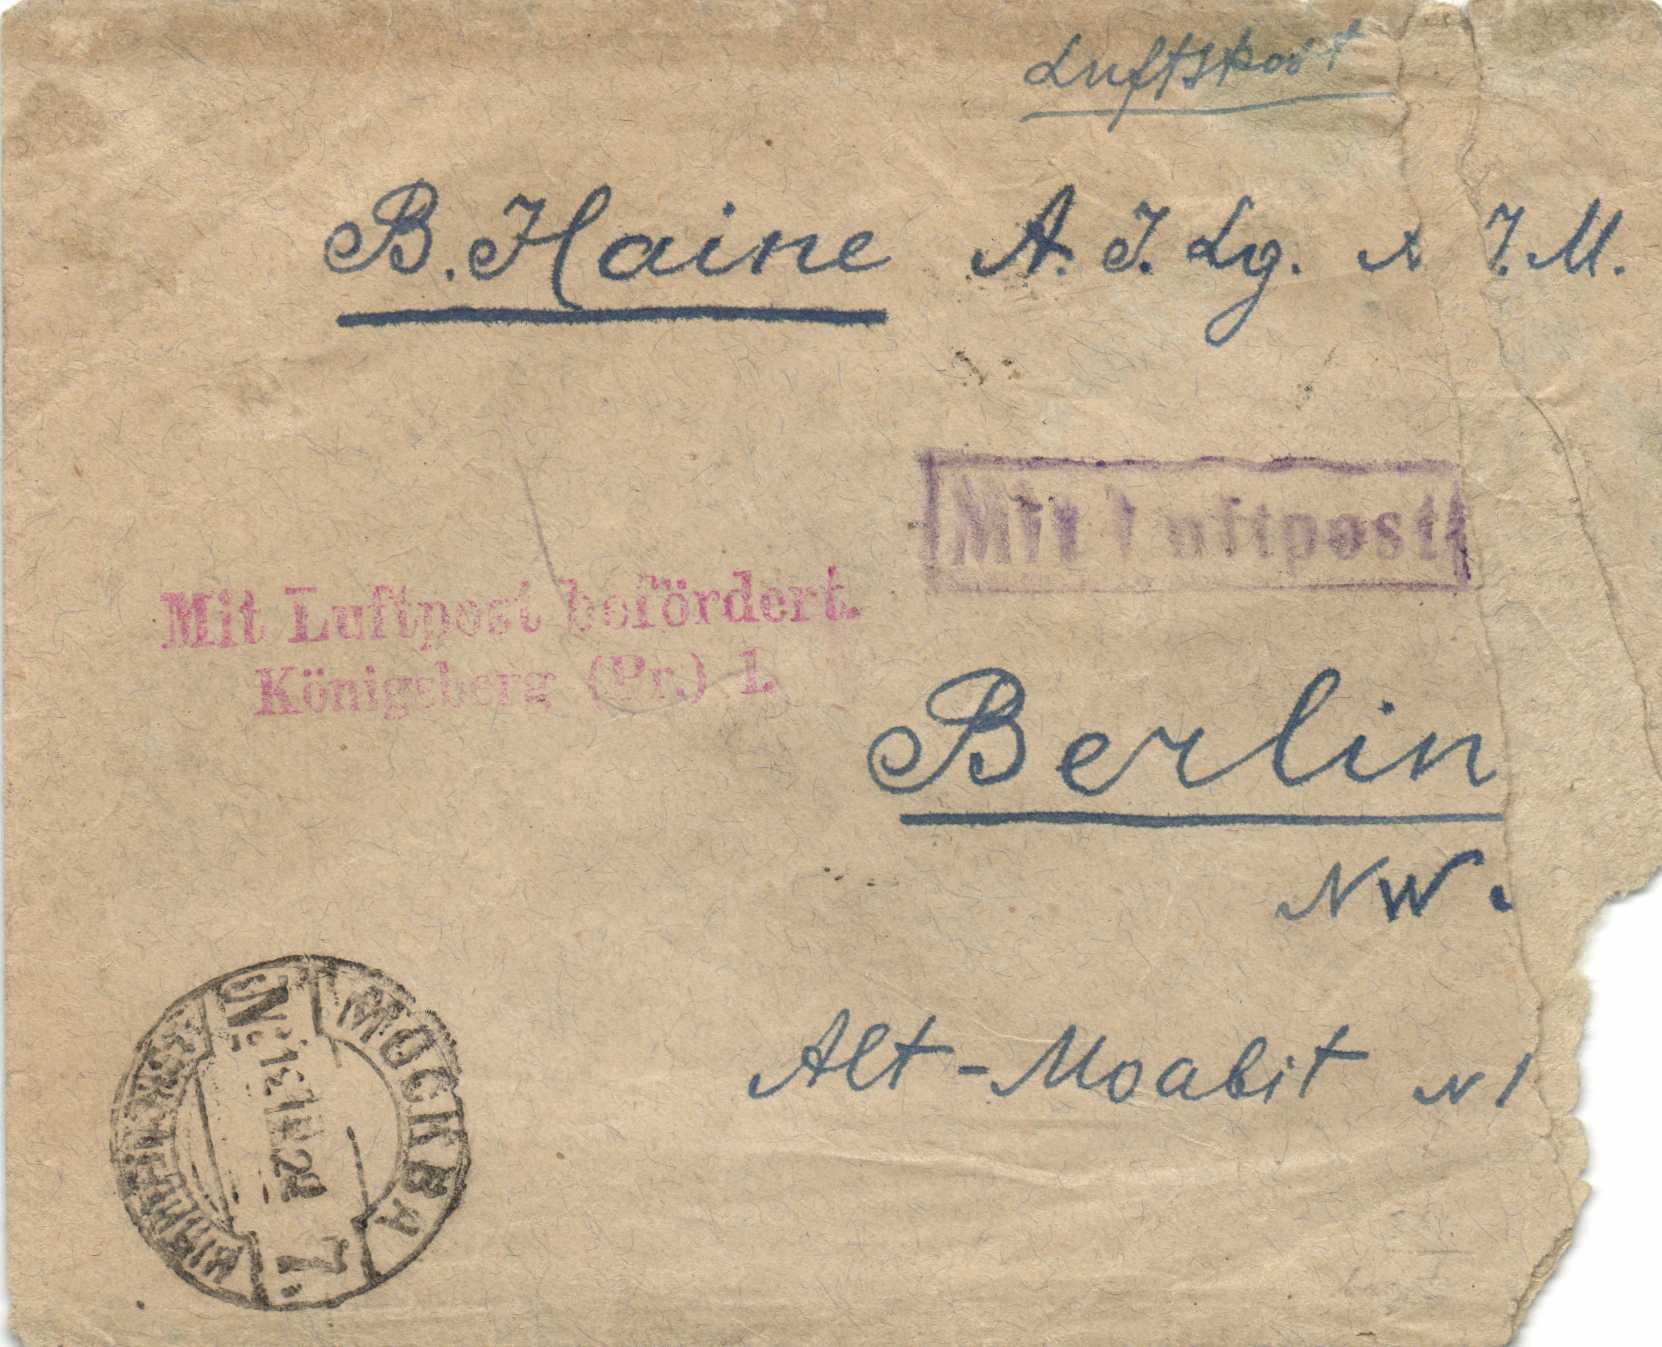 Luftpost
B. Haine A. J. Lg. N J. M.
Mit Luftpost
Mit Luftpost befördert.
Königsberg (Pr.) 1.
Berlin
NW.
Alt-Moabit N 1
МОСКВА
7